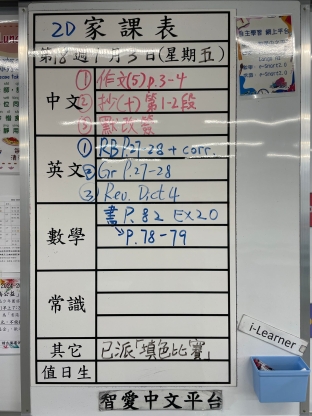 2D 家課表
第18週 1月3日(星期五)
中文
① 作文(5)p.3-4
② 抄(十)第1-2段
③ 默改簽
英文
① RB P.27-28 + corr.
② Gr P.27-28
③ Rev. Dict 4
數學
書 P.82 EX20
↘P.78-79
常識
其它
已派「填色比賽」
值日生
智愛中文平台
自主學習 網上平台
i-Learner